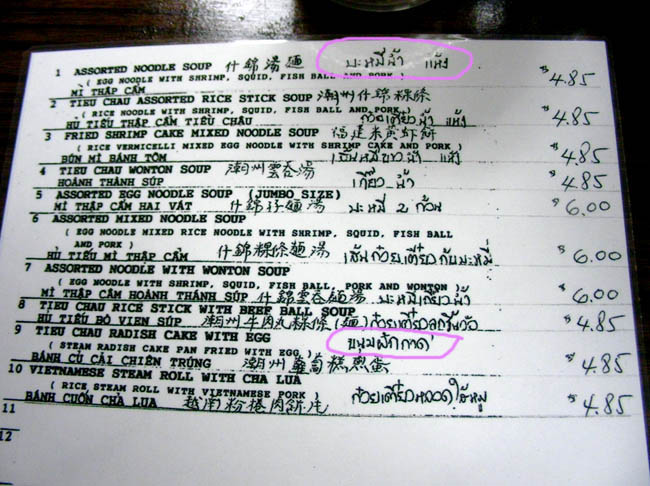 1 ASSORTED NOODLE SOUP 什錦湯麵 บะหมี่น้ำ แห้ง $4.85
( EGG NOODLE WITH SHRIMP, SQUID, FISH BALL AND PORK )
MÌ THẬP CẨM
2 TIEU CHAU ASSORTED RICE STICK SOUP 潮州什錦粿條
( RICE NOODLE WITH SHRIMP, SQUID, FISH BALL AND PORK ) $4.85
HỦ TIẾU THẬP CẨM TIỀU CHÂU ก๋วยเตี๋ยวน้ำ แห้ง
3 FRIED SHRIMP CAKE MIXED NOODLE SOUP 福建米黄虾餅
( RICE VERMICELLI MIXED EGG NOODLE WITH SHRIMP CAKE AND PORK ) $4.85
BÚN MÌ BÁNH TÔM เส้นหมี่ขาวน้ำ แห้ง
4 TIEU CHAU WONTON SOUP 潮州雲吞湯
HOÀNH THÁNH SÚP เกี๊ยวน้ำ $4.85
5 ASSORTED EGG NOODLE SOUP (JUMBO SIZE)
MÌ THẬP CẨM HAI VẮT 什錦孖麵湯 บะหมี่ 2 ก้อน $6.00
6 ASSORTED MIXED NOODLE SOUP
( EGG NOODLE MIXED RICE NOODLE WITH SHRIMP, SQUID, FISH BALL
AND PORK )
HỦ TIẾU MÌ THẬP CẨM 什錦粿條麵湯 เส้นก๋วยเตี๋ยวกับบะหมี่ $6.00
7 ASSORTED NOODLE WITH WONTON SOUP
( EGG NOODLE WITH SHRIMP, SQUID, FISH BALL, PORK AND WONTON )
MÌ THẬP CẨM HOÀNH THÁNH SÚP 什錦雲吞麵湯 บะหมี่เกี๊ยวน้ำ $6.00
8 TIEU CHAU RICE STICK WITH BEEF BALL SOUP
HỦ TIẾU BÒ VIÊN SÚP 潮州牛肉丸粿條(麵) ก๋วยเตี๋ยวลูกชิ้นวัว $4.85
9 TIEU CHAU RADISH CAKE WITH EGG ขนมผักกาด
( STEAM RADISH CAKE PAN FRIED WITH EGG )
BÁNH CỦ CẢI CHIÊN TRỨNG 潮州蘿蔔糕煎蛋 $4.85
10 VIETNAMESE STEAM ROLL WITH CHA LUA
( RICE STEAM ROLL WITH VIETNAMESE PORK ) ก๋วยเตี๋ยวหลอดไส้หมู
BÁNH CUỐN CHẢ LỤA 越南粉捲肉餅 $4.85
11
12